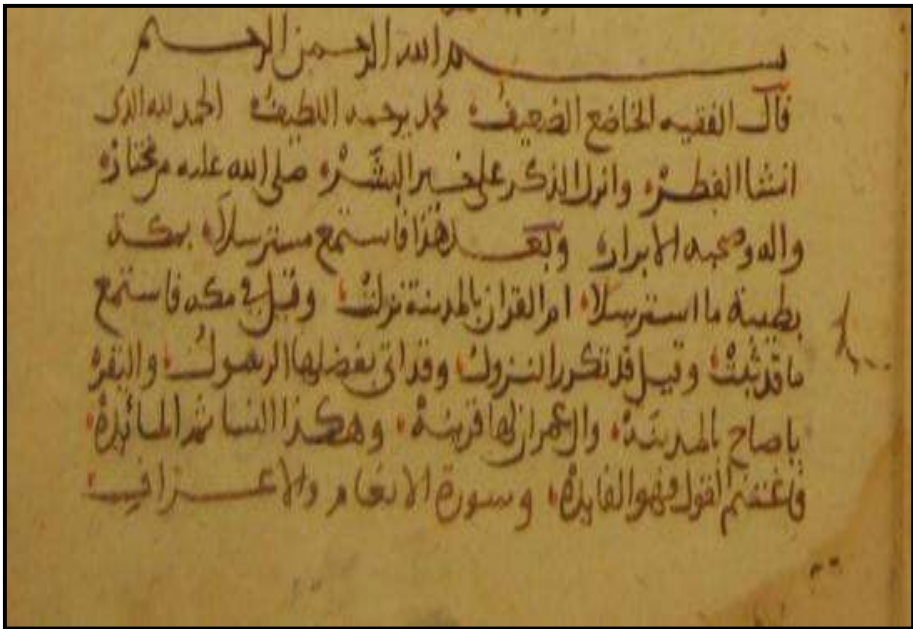 بسم الله الرحمن الرحيم
قال الفقيه الخاضع الضعيف محمد يرحمه اللطيف الحمد لله الذى
انشا الفطره وانزل الذكر على خير البشره صلى الله عليه من مختاره
واله وصحبه الابراره وبعد هذا فاستمع مسترسلا بمكة
بطيبة ما استرسلا ام القران بالمدينة نزلت وقيل فى مكه فاستمع
ما قد ثبت وقيل قد تكرر النزول وقد اتى بفضلها الرسول والبقره
يا صاح بالمدينه وال عمران لها قرينه وهكذا النسا ثم المائده
فاغتنم القول فهو الفايده وسورة الانعام والاعراف